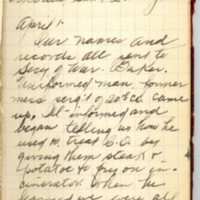 April 1
Our names and
records all sent to
Secy of War. Baker.
Uniformed man, former
mess serg't of 20th Co. came
up, Ill-informed and
began telling us how he
used to treat C.O. by
giving them steak &
potatoes to fry on in-
cinerator. When he
learned we were all